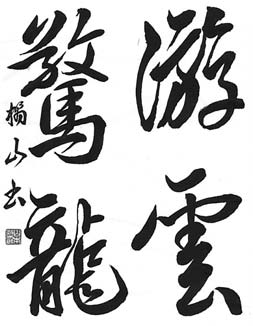 游雲
驚龍
楊山书